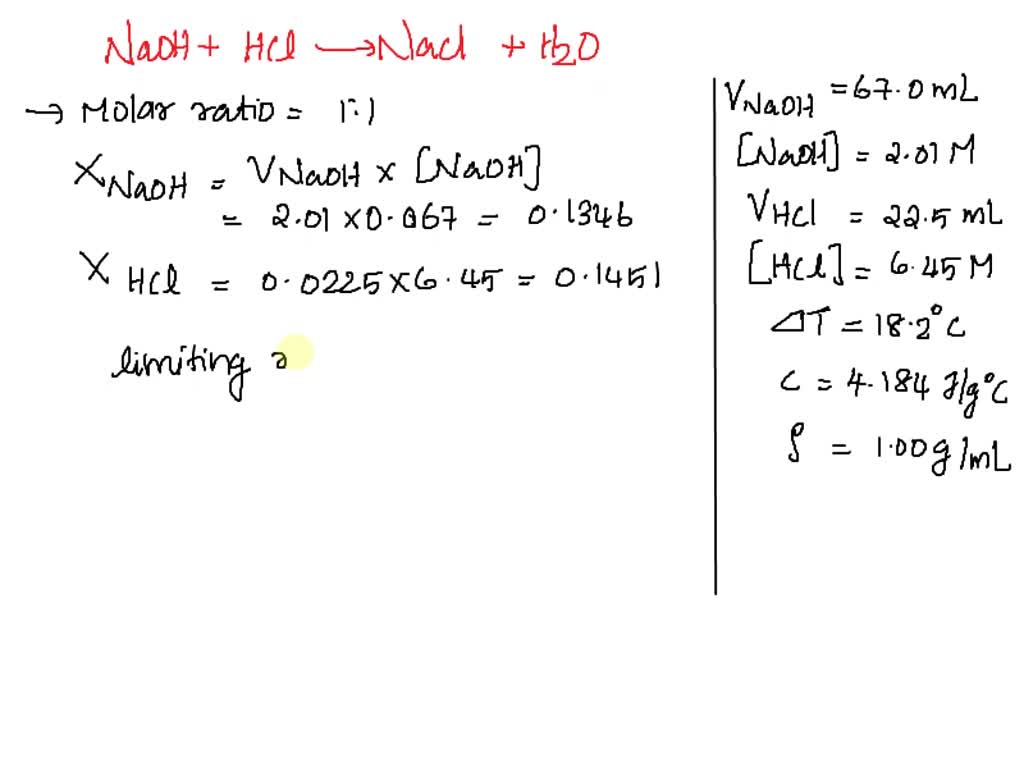 NaOH + HCl → NaCl + H2O
→ Molar ratio = 1:1
XNaOH = VNaOH x [NaOH]
= 2.01 x 0.067 = 0.1346
XHCl = 0.0225 x 6.45 = 0.1451
limiting r
VNaOH = 67.0 mL
[NaOH] = 2.01 M
VHCl = 22.5 mL
[HCl] = 6.45 M
ΔT = 18.2°C
C = 4.184 J/g°C
ρ = 1.00 g/mL